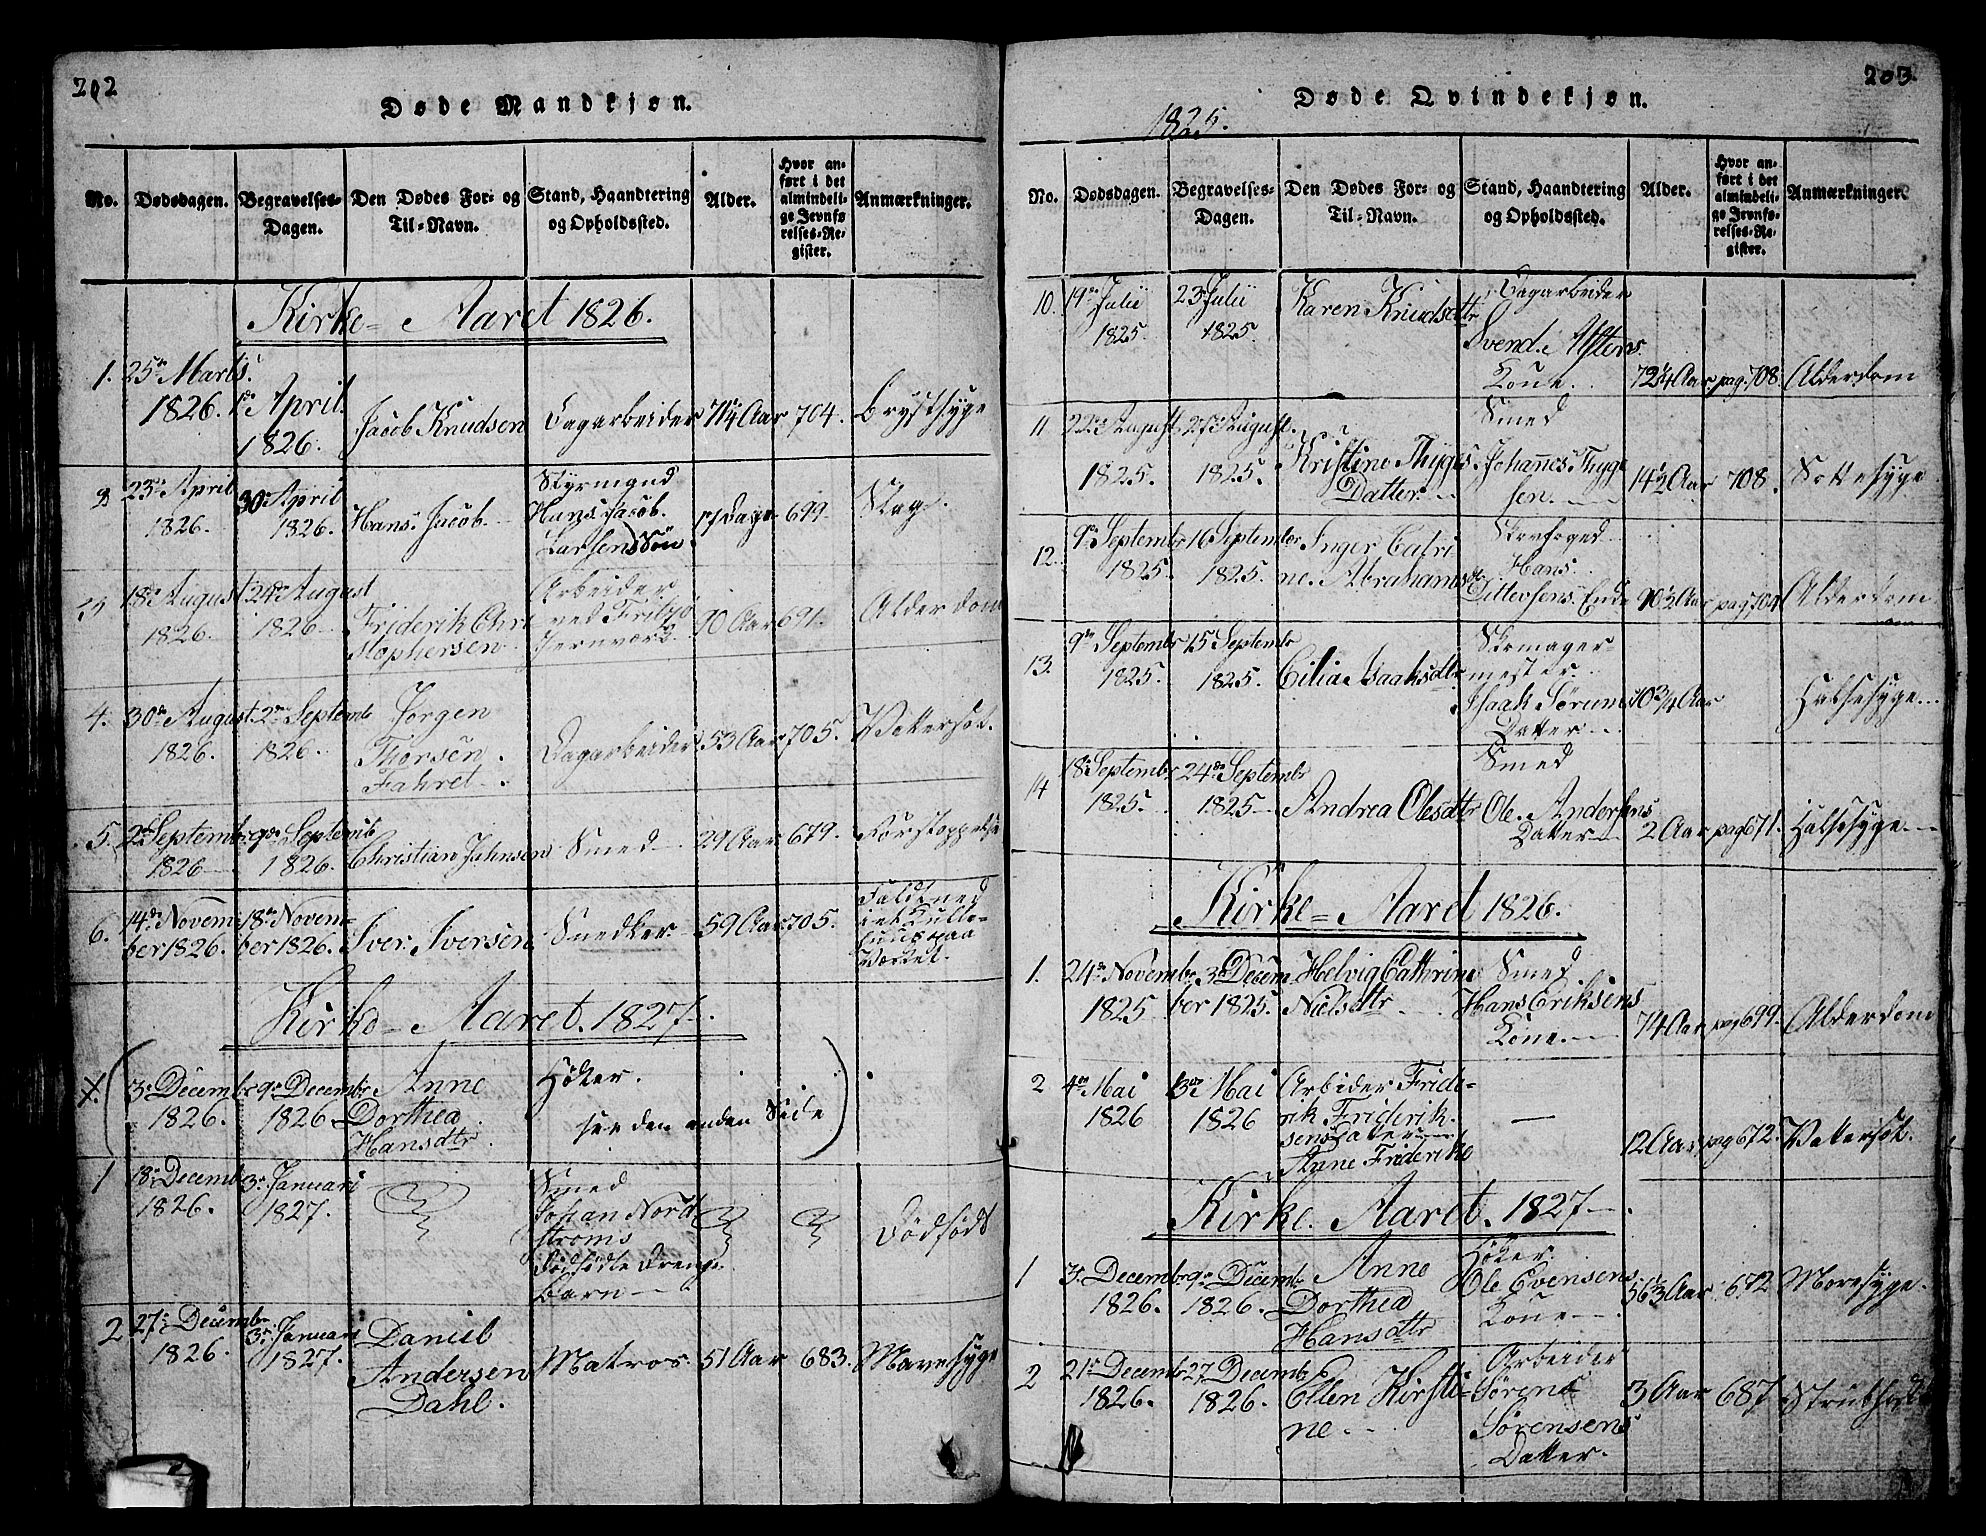 202
Døde Mandkjøn.
No.
Dødsdagen.
Begravelses-
Dagen.
Den Dødes For- og
Til-Navn.
Stand, Haandtering
og Opholdssted.
Alder.
Hvor an-
ført i det
almindeli-
ge Jevnfø
relses-Re-
gister.
Anmærkninger.
Kirke-Aaret 1826.
1. 25de Martii 1826.
1de April 1826.
Jacob Knudsen
Dagarbeider
71 1/4 Aar
704.
Brystsyge
23de April 1826.
30de April 1826.
Hans Jacob
Styrmand
Hans Jacob
Larsens Søn.
17 Dage
699
Slag.
18de August 1826.
24de August 1826
Friderik Chri
stophersen
Arbeider
ved Fritzø
Jernværk.
90 Aar
691.
Alderdom
4. 30de August 1826.
2den Septemb 1826.
Jørgen
Thorsen
Fahret.
Dagarbeider
53 Aar
705.
Vattersot.
5. 2den Septembr 1826
9de Septemb 1826.
Christian Jahnsen
Smed
29 Aar
679.
Forstoppelse
6. 14de Novem
ber 1826.
18de Novem-
ber 1826.
Iver Iversen
Snedker
59 Aar
705.
Faldt ned
i et Kulle-
huus paa
Værket.
Kirke-Aaret. 1827.
3de Decembr 1826.
9de Decembr 1826
Anne
Dorthea
Hansdtr.
Høker.
see den anden Side
1
18de Decembr 1826.
3de Januari 1827.
Smed
Johan Nord
strøms
dødfødte Drenge
Barn
Dødfødt
2
27de Decembr 1826.
3de Januari 1827.
Daniel
Andersen
Dahl.
Matros.
51 Aar
683.
Mavesyge
203
Døde Qvindekjøn.
1825.
No.
Dødsdagen.
Begravelses-
Dagen.
Den Dødes For- og
Til-Navn.
Stand, Haandtering
og Opholdssted.
Alder.
Hvor an-
ført i det
almindeli-
ge Jevnfø-
relses-Re-
gister.
Anmærkninger.
10. 19de Julii 1825.
23de Julii 1825.
Karen Knudsdtr
Dagarbeider
Svend
Kone.
72 1/4 Aar
pag. 708.
Alderdom
11
22de August 1825.
27de August. 1825.
Kristine Thyges
Datter
Smed
Johannes Thyge
sen
14 1/2 Aar
708.
Sottesyge
12.
9de Septembr 1825.
16 September 1825.
Inger Catri
ne. Abrahamsdtr
Hans
Ditlevsens. Enke
90 1/2 Aar
pag. 704
Alderdom
13.
9de Septembr 1825.
15 Septembr 1825.
Cilia Isaaksdtr
Skomager-
mester
Isaak Sørums
Datter
10 3/4 Aar
Halsesyge
14
18de Septembr 1825.
24de Septembr 1825
Andrea Olesdtr
Smed
Ole. Andersens
Datter
2 Aar
pag 671.
Halsesyge
Kirke-Aaret 1826.
1.
24de Novembr 1825
3de Decem
ber 1825.
Helvig Cathrine
Nielsdtr
Smed
Hans Eriksens
Kone.
74 Aar
pag 699.
Alderdom
2
4de Mai 1826
13de Mai 1826
Arbeider Fride-
rik Friderik
sens Datter
Anne Friderike
12 Aar
pag 672.
Vattersot.
Kirke. Aaret. 1827
1
3de Decembr 1826.
9de Decemb 1826.
Anne
Dorthea
Hansdtr
Høker.
Ole Evensens
Kone
56 1/2 Aar
672
Mavesyge.
2
21de Decembr 1826.
27de Decembr 1826.
Ellen Kirsti-
ne.
Arbeider
Sørens
Sørensens
Datter.
3 Aar
687
Strubhoste